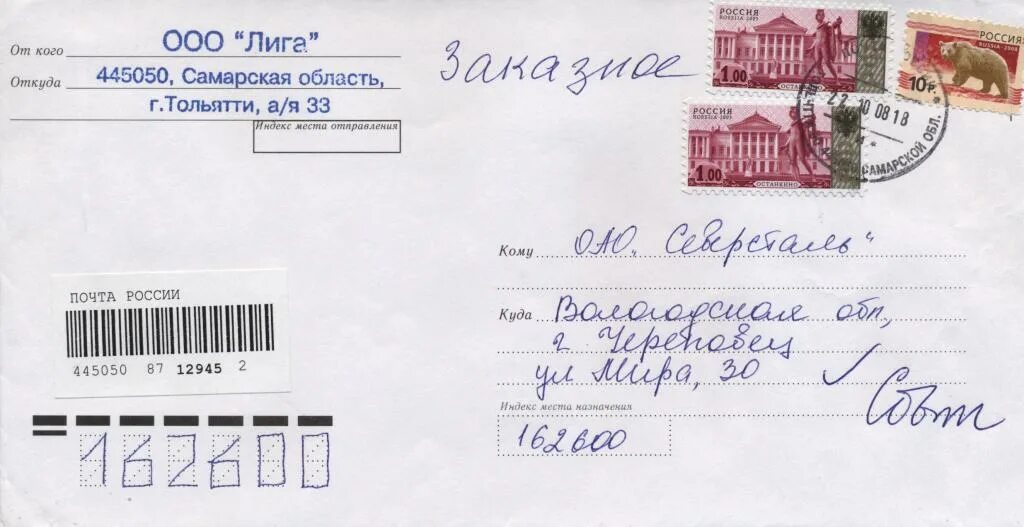 От кого ООО "Лига"
Откуда 445050, Самарская область,
г.Тольятти, а/я 33
Индекс места отправления
Заказное
РОССИЯ
ROSSIJA·2003
1.00
ОСТАНКИНО
РОССИЯ
ROSSIJA·2003
1.00
ОСТАНКИНО
РОССИЯ
RUSSIA·2008
10 р.
22 10 08 18
САМАРСКОЙ ОБЛ.
Кому ОАО „Северсталь"
Куда Вологодская обл,
г Череповец
ул Мира, 30
Индекс места назначения
162600
ПОЧТА РОССИИ
445050 87 12945 2
162600